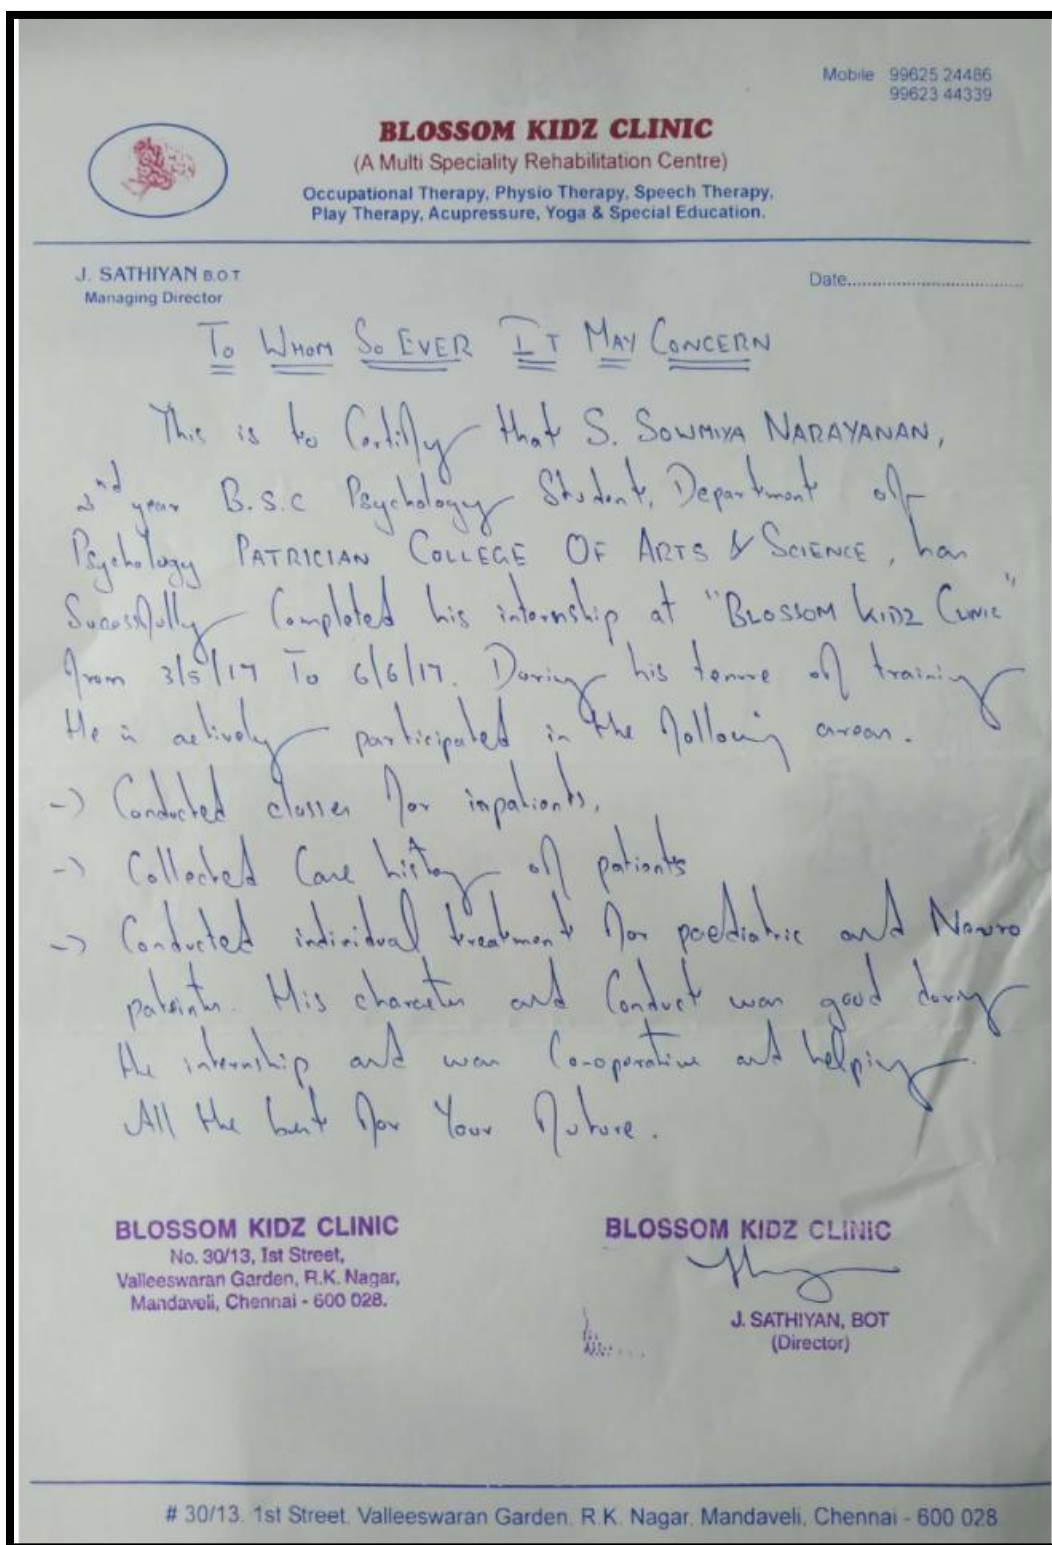 Mobile 99625 24486
99623 44339
BLOSSOM KIDZ CLINIC
(A Multi Speciality Rehabilitation Centre)
Occupational Therapy, Physio Therapy, Speech Therapy,
Play Therapy, Acupressure, Yoga & Special Education.
J. SATHIYAN B.O.T
Managing Director
Date..................................
To WHOM So EVER IT MAY CONCERN
This is to Certify that S. SOWMIYA NARAYANAN,
nd year B.S.C Psychology Student, Department of
Psychology PATRICIAN COLLEGE OF ARTS & SCIENCE, has
Sucessfully Completed his internship at "BLOSSOM KIDZ CLINIC"
from 3/5/17 To 6/6/17. During his tenure of training
He is actively participated in the following areas.
-> Conducted classes for inpatients,
-> Collected Case history of patients
-> Conducted individual treatment for paediatric and
patients. His character and Conduct was good during
the internship and was Co-operative and helping.
All the best for Your future.
BLOSSOM KIDZ CLINIC
No. 30/13, Ist Street,
Valleeswaran Garden, R.K. Nagar,
Mandaveli, Chennai - 600 028.
BLOSSOM KIDZ CLINIC
J. SATHIYAN, BOT
(Director)
# 30/13, 1st Street, Valleeswaran Garden, R.K. Nagar, Mandaveli, Chennai - 600 028